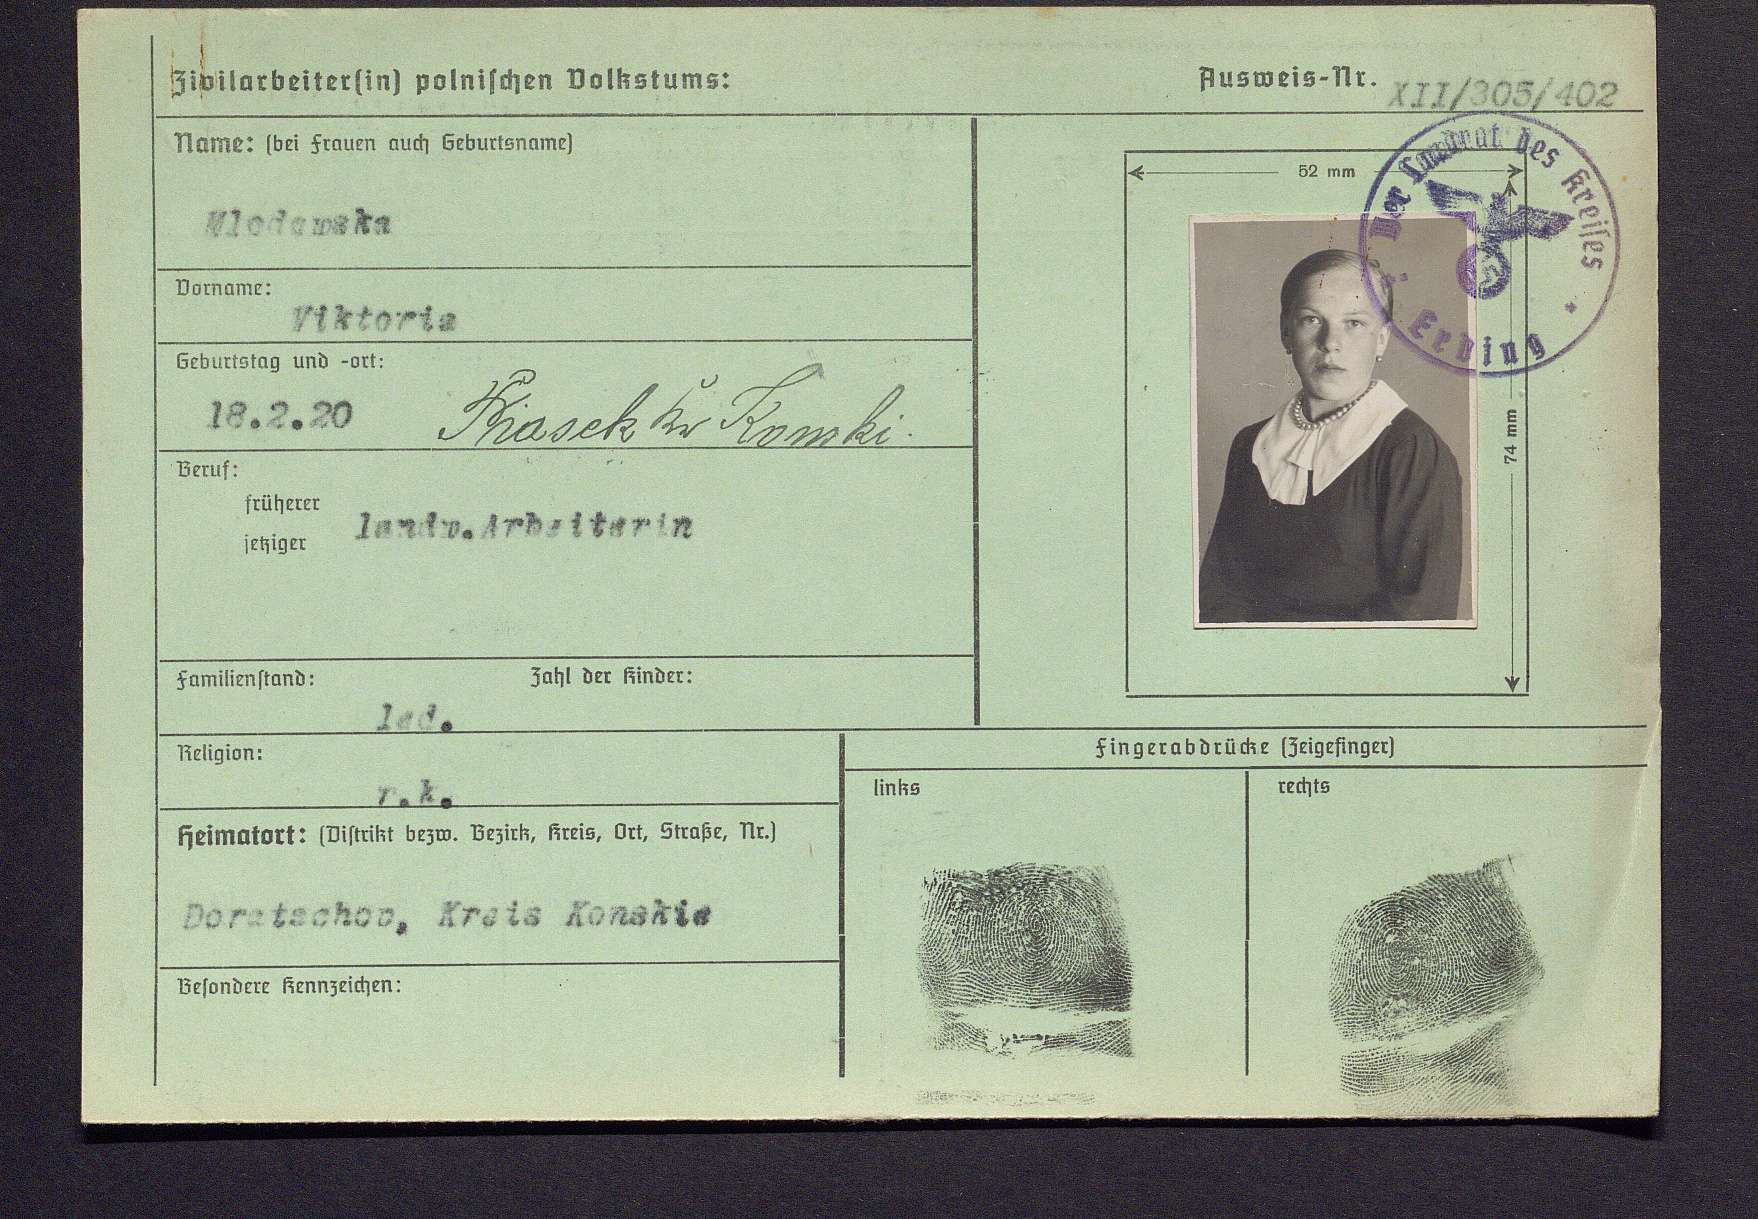 Zivilarbeiter(in) polnischen Volkstums:
Ausweis-Nr. XII/305/402
Name: (bei Frauen auch Geburtsname)
Wlodawska
Vorname:
Viktoria
Geburtstag und -ort:
18.2.20 Piasek Kr Konski.
Beruf:
früherer
landw.Arbeiterin
jetziger
Familienstand: Zahl der Kinder:
led.
Religion:
r.k.
Heimatort: (Distrikt bezw. Bezirk, Kreis, Ort, Straße, Nr.)
Kreis Konskie
Besondere Kennzeichen:
52 mm
74 mm
Der Landrat des Kreises
Erding
Fingerabdrücke (Zeigefinger)
links
rechts